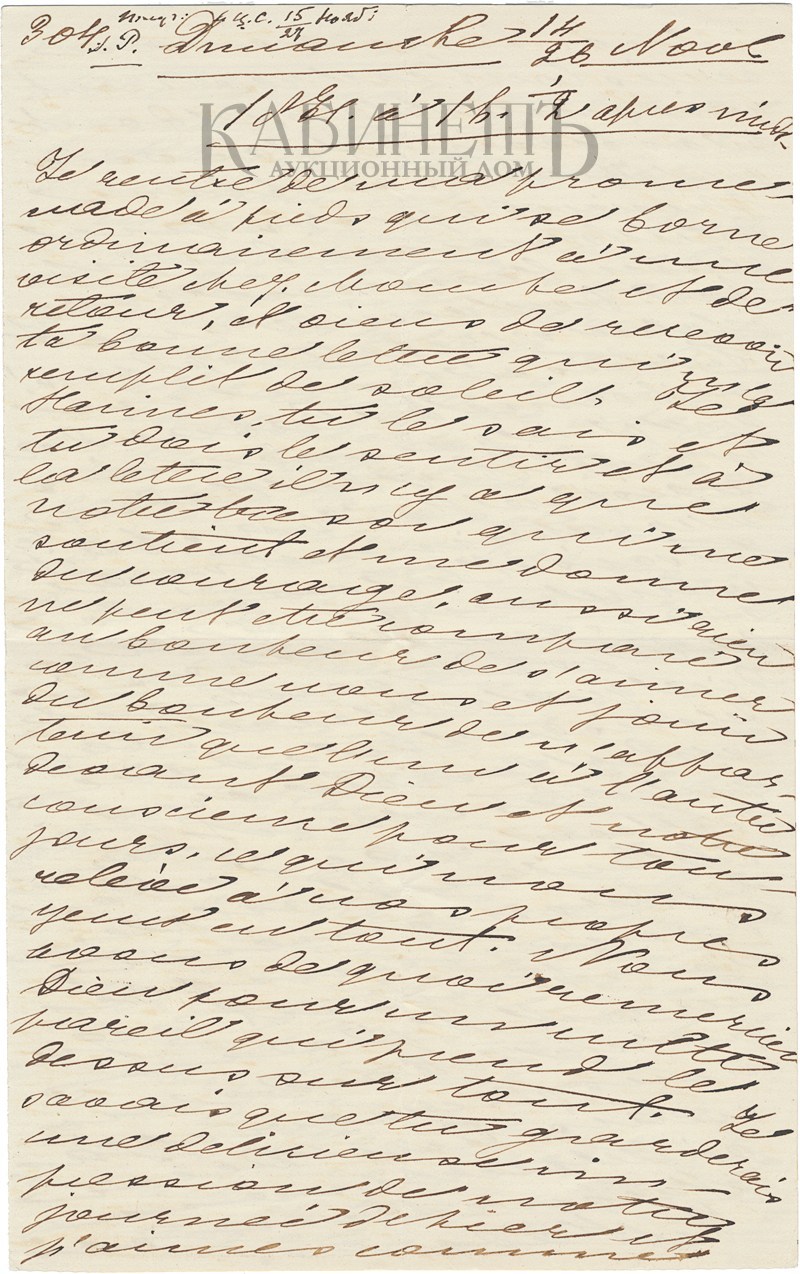 304 Получ: Ц.С. 15/27 Нояб:
St. P. Dimanche 14/26 Nov
1871. à 1 h. 1/2 après midi
КАБИНЕТЪ
АУКЦИОННЫЙ ДОМ
Je rentre de ma prome
nade à pieds qui se borne
ordinairement à une
visite chez et de
retour, et viens de recevoir
ta bonne lettre qui m'a
remplit de soleil. Je
t'aime, tu le sais et
tu dois le sentir et à
la lettre il n'y a que
notre qui me
soutient et me donne
du courage, aussi rien
ne peut être comparé
au bonheur de s'aimer
comme nous et jouir
du bonheur de n'appar-
tenir que l'un à l'autre
devant Dieu et notre
conscience pour tou-
jours, ce qui nous
relève à nos propres
yeux en tout. Nous
avons de quoi remercier
Dieu pour un culte
pareil qui prend le
dessus sur tout. Je
savais que tu garderais
une délicieuse im-
pression de notre
journée d'hier et
j'aime comme